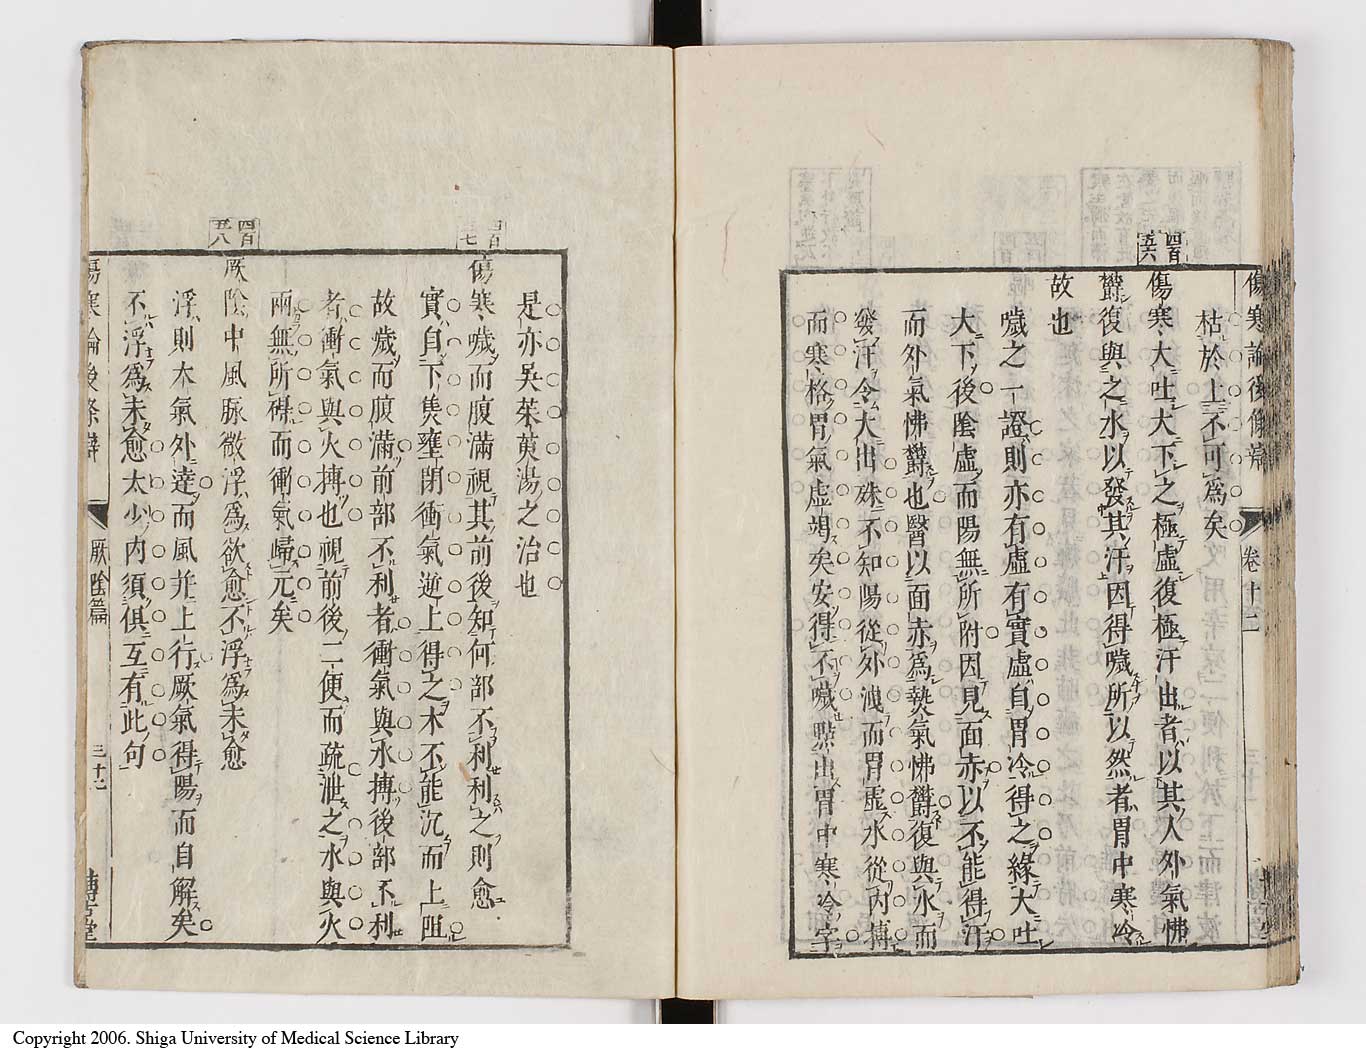 傷寒論後條辨
卷十二
枯於上不可為矣
四百五六
傷寒大吐大下之極虛復極汗出者以其人外氣怫
欝復與之水以發其汗因得噦所以然者胃中寒冷
故也
噦之一證則亦有虛有實虛自胃冷得之緣大吐
大下後陰虛而陽無所附因見面赤以不能得汗
而外氣怫欝也醫以面赤為熱氣怫欝復與水而
發汗令大出殊不知陽從外洩而胃虛水從內摶
而寒格胃氣虛竭矣安得不噦點出胃中寒冷字
是亦吳茱萸湯之治也
四百五七
傷寒噦而腹滿視其前後知何部不利利之則愈
實自下焦壅閉衝氣逆上得之木不能沉而上阻
故噦而腹滿前部不利者衝氣與水摶後部不利
者衝氣與火摶也視前後二便而疏泄之水與火
兩無所礙而衝氣歸元矣
四百五八
厥陰中風脉微浮為欲愈不浮為未愈
浮則木氣外達而風并上行厥氣得陽而自解矣
不浮為未愈太少內須俱互有此句
傷寒論後條辨
厥陰篇
三十一
Copyright 2006. Shiga University of Medical Science Library